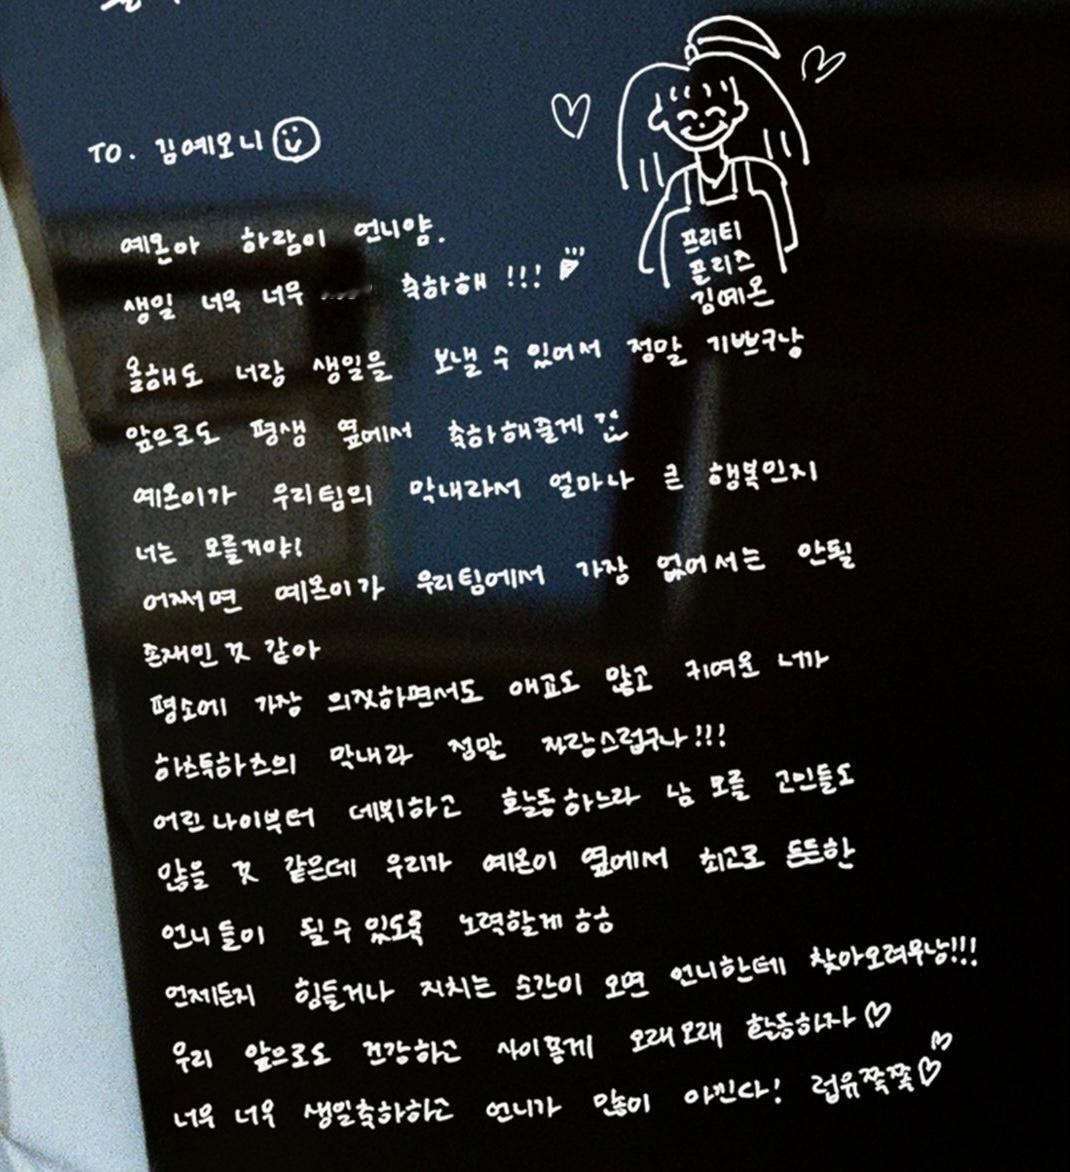 TO. 김예오니
프리티
플리즈
김예온
예온아 하람이 언니얌.
생일 너무 너무 축하해 !!!
올해도 너랑 생일을 보낼 수 있어서 정말 기쁘구낭
앞으로도 평생 옆에서 축하해줄게
예온이가 우리팀의 막내라서 얼마나 큰 행복인지
너는 모를거야!
어쩌면 예온이가 우리팀에서 가장 없어서는 안될
존재인 것 같아
평소에 가장 의젓하면서도 애교도 많고 귀여운 니가
하츠투하츠의 막내라 정말 자랑스럽구나!!!
어린나이부터 데뷔하고 활동하느라 남 모를 고민들도
많을 것 같은데 우리가 예온이 옆에서 최고로 든든한
언니들이 될 수 있도록 노력할게 ㅎㅎ
언제든지 힘들거나 지치는 순간이 오면 언니한테 찾아오려무낭!!!
우리 앞으로도 건강하고 사이좋게 오래오래 활동하자♡
너무 너무 생일축하하고 언니가 많이 아낀다! 럽유쪽쪽♡♡